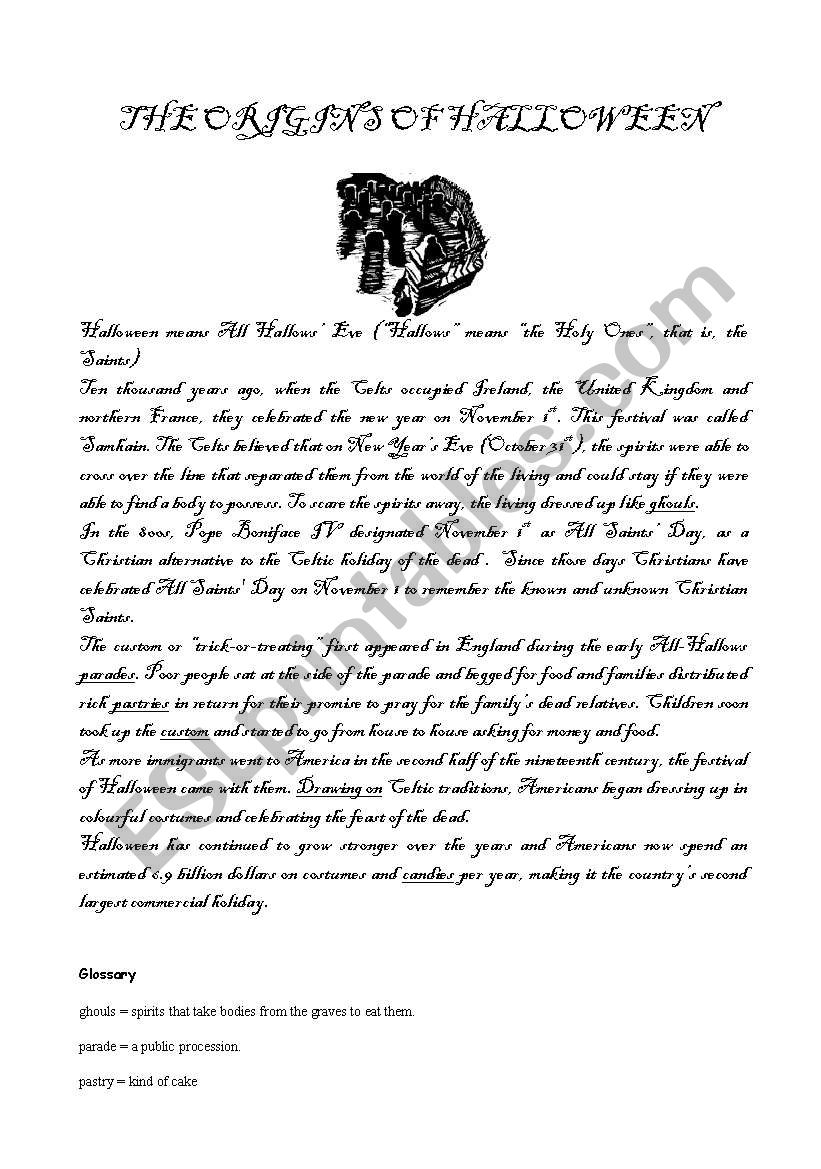 THE ORIGINS OF HALLOWEEN
Halloween means All Hallows' Eve ("Hallows" means "the Holy Ones", that is, the
Saints)
Ten thousand years ago, when the Celts occupied Ireland, the United Kingdom and
northern France, they celebrated the new year on November 1st. This festival was called
Samhain. The Celts believed that on New Year's Eve (October 31st), the spirits were able to
cross over the line that separated them from the world of the living and could stay if they were
able to find a body to possess. To scare the spirits away, the living dressed up like ghouls.
In the 800s, Pope Boniface IV designated November 1st as All Saints' Day, as a
Christian alternative to the Celtic holiday of the dead . Since those days Christians have
celebrated All Saints' Day on November 1 to remember the known and unknown Christian
Saints.
The custom or "trick-or-treating" first appeared in England during the early All-Hallows
parades. Poor people sat at the side of the parade and begged for food and families distributed
rich pastries in return for their promise to pray for the family's dead relatives. Children soon
took up the custom and started to go from house to house asking for money and food.
As more immigrants went to America in the second half of the nineteenth century, the festival
of Halloween came with them. Drawing on Celtic traditions, Americans began dressing up in
colourful costumes and celebrating the feast of the dead.
Halloween has continued to grow stronger over the years and Americans now spend an
estimated 6.9 billion dollars on costumes and candies per year, making it the country's second
largest commercial holiday.
Glossary
ghouls = spirits that take bodies from the graves to eat them.
parade = a public procession.
pastry = kind of cake
ESLprintables.com